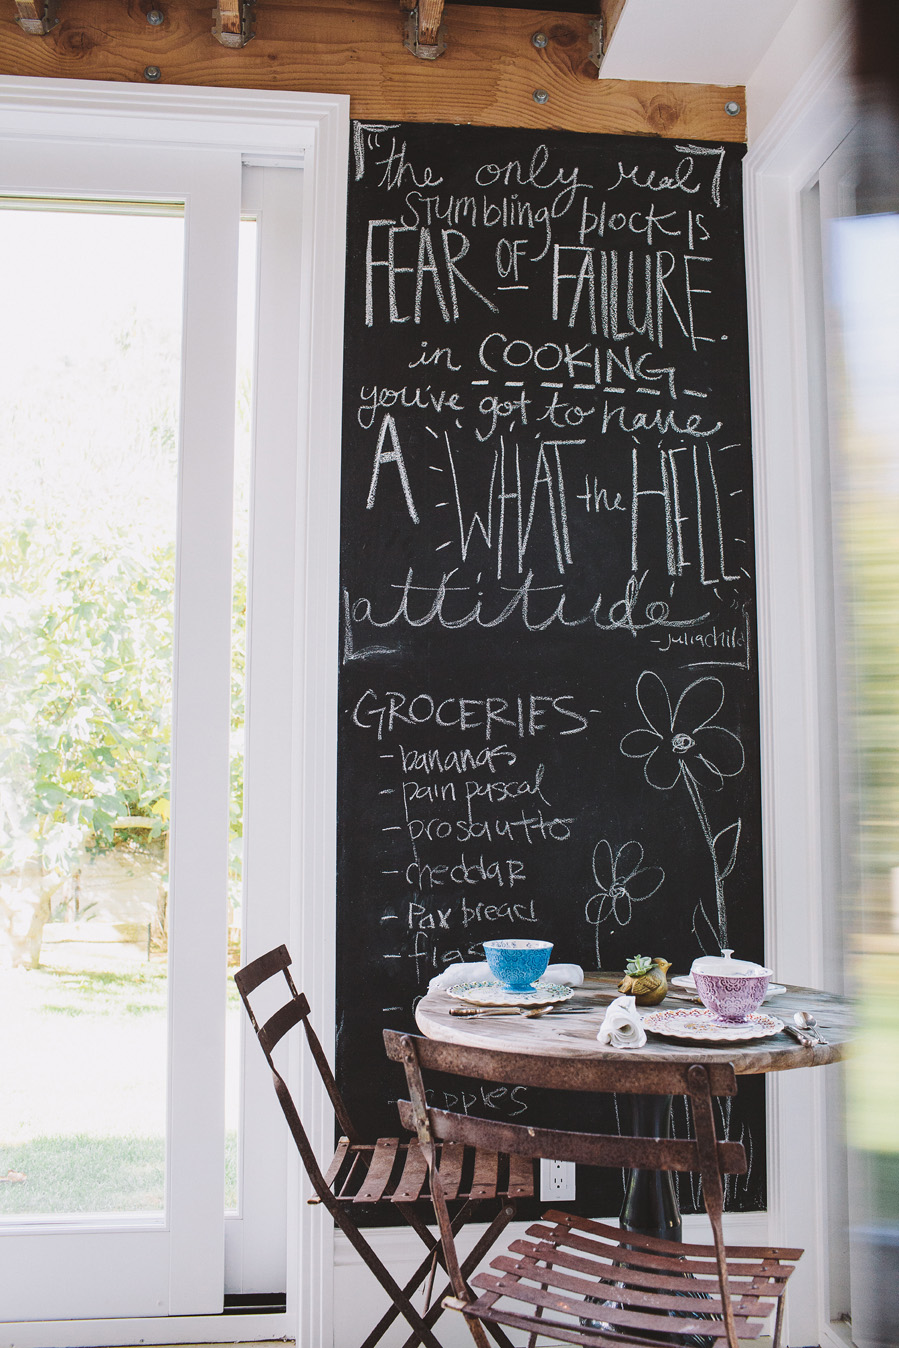 "the only real
stumbling block is
FEAR OF FAILURE.
in COOKING
you've got to have
A WHAT the HELL
attitude"
-julia child
GROCERIES-
- bananas
- pain pascal
- prosciutto
- cheddar
- Pax bread